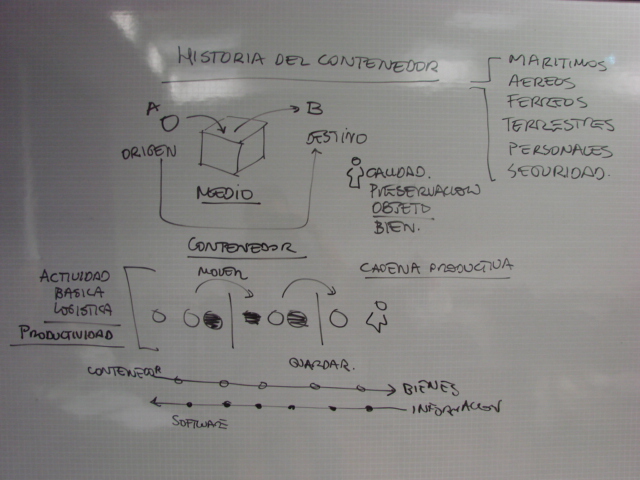 HISTORIA DEL CONTENEDOR
MARITIMOS
AEREOS
FERREOS
TERRESTRES
PERSONALES
SEGURIDAD.
A
B
ORIGEN
DESTINO
MEDIO
CALIDAD.
PRESERVACION
OBJETO
BIEN.
CONTENEDOR
MOVER
CADENA PRODUCTIVA
ACTIVIDAD
BASICA
LOGISTICA
PRODUCTIVIDAD
GUARDAR.
CONTENEDOR
BIENES
INFORMACION
SOFTWARE